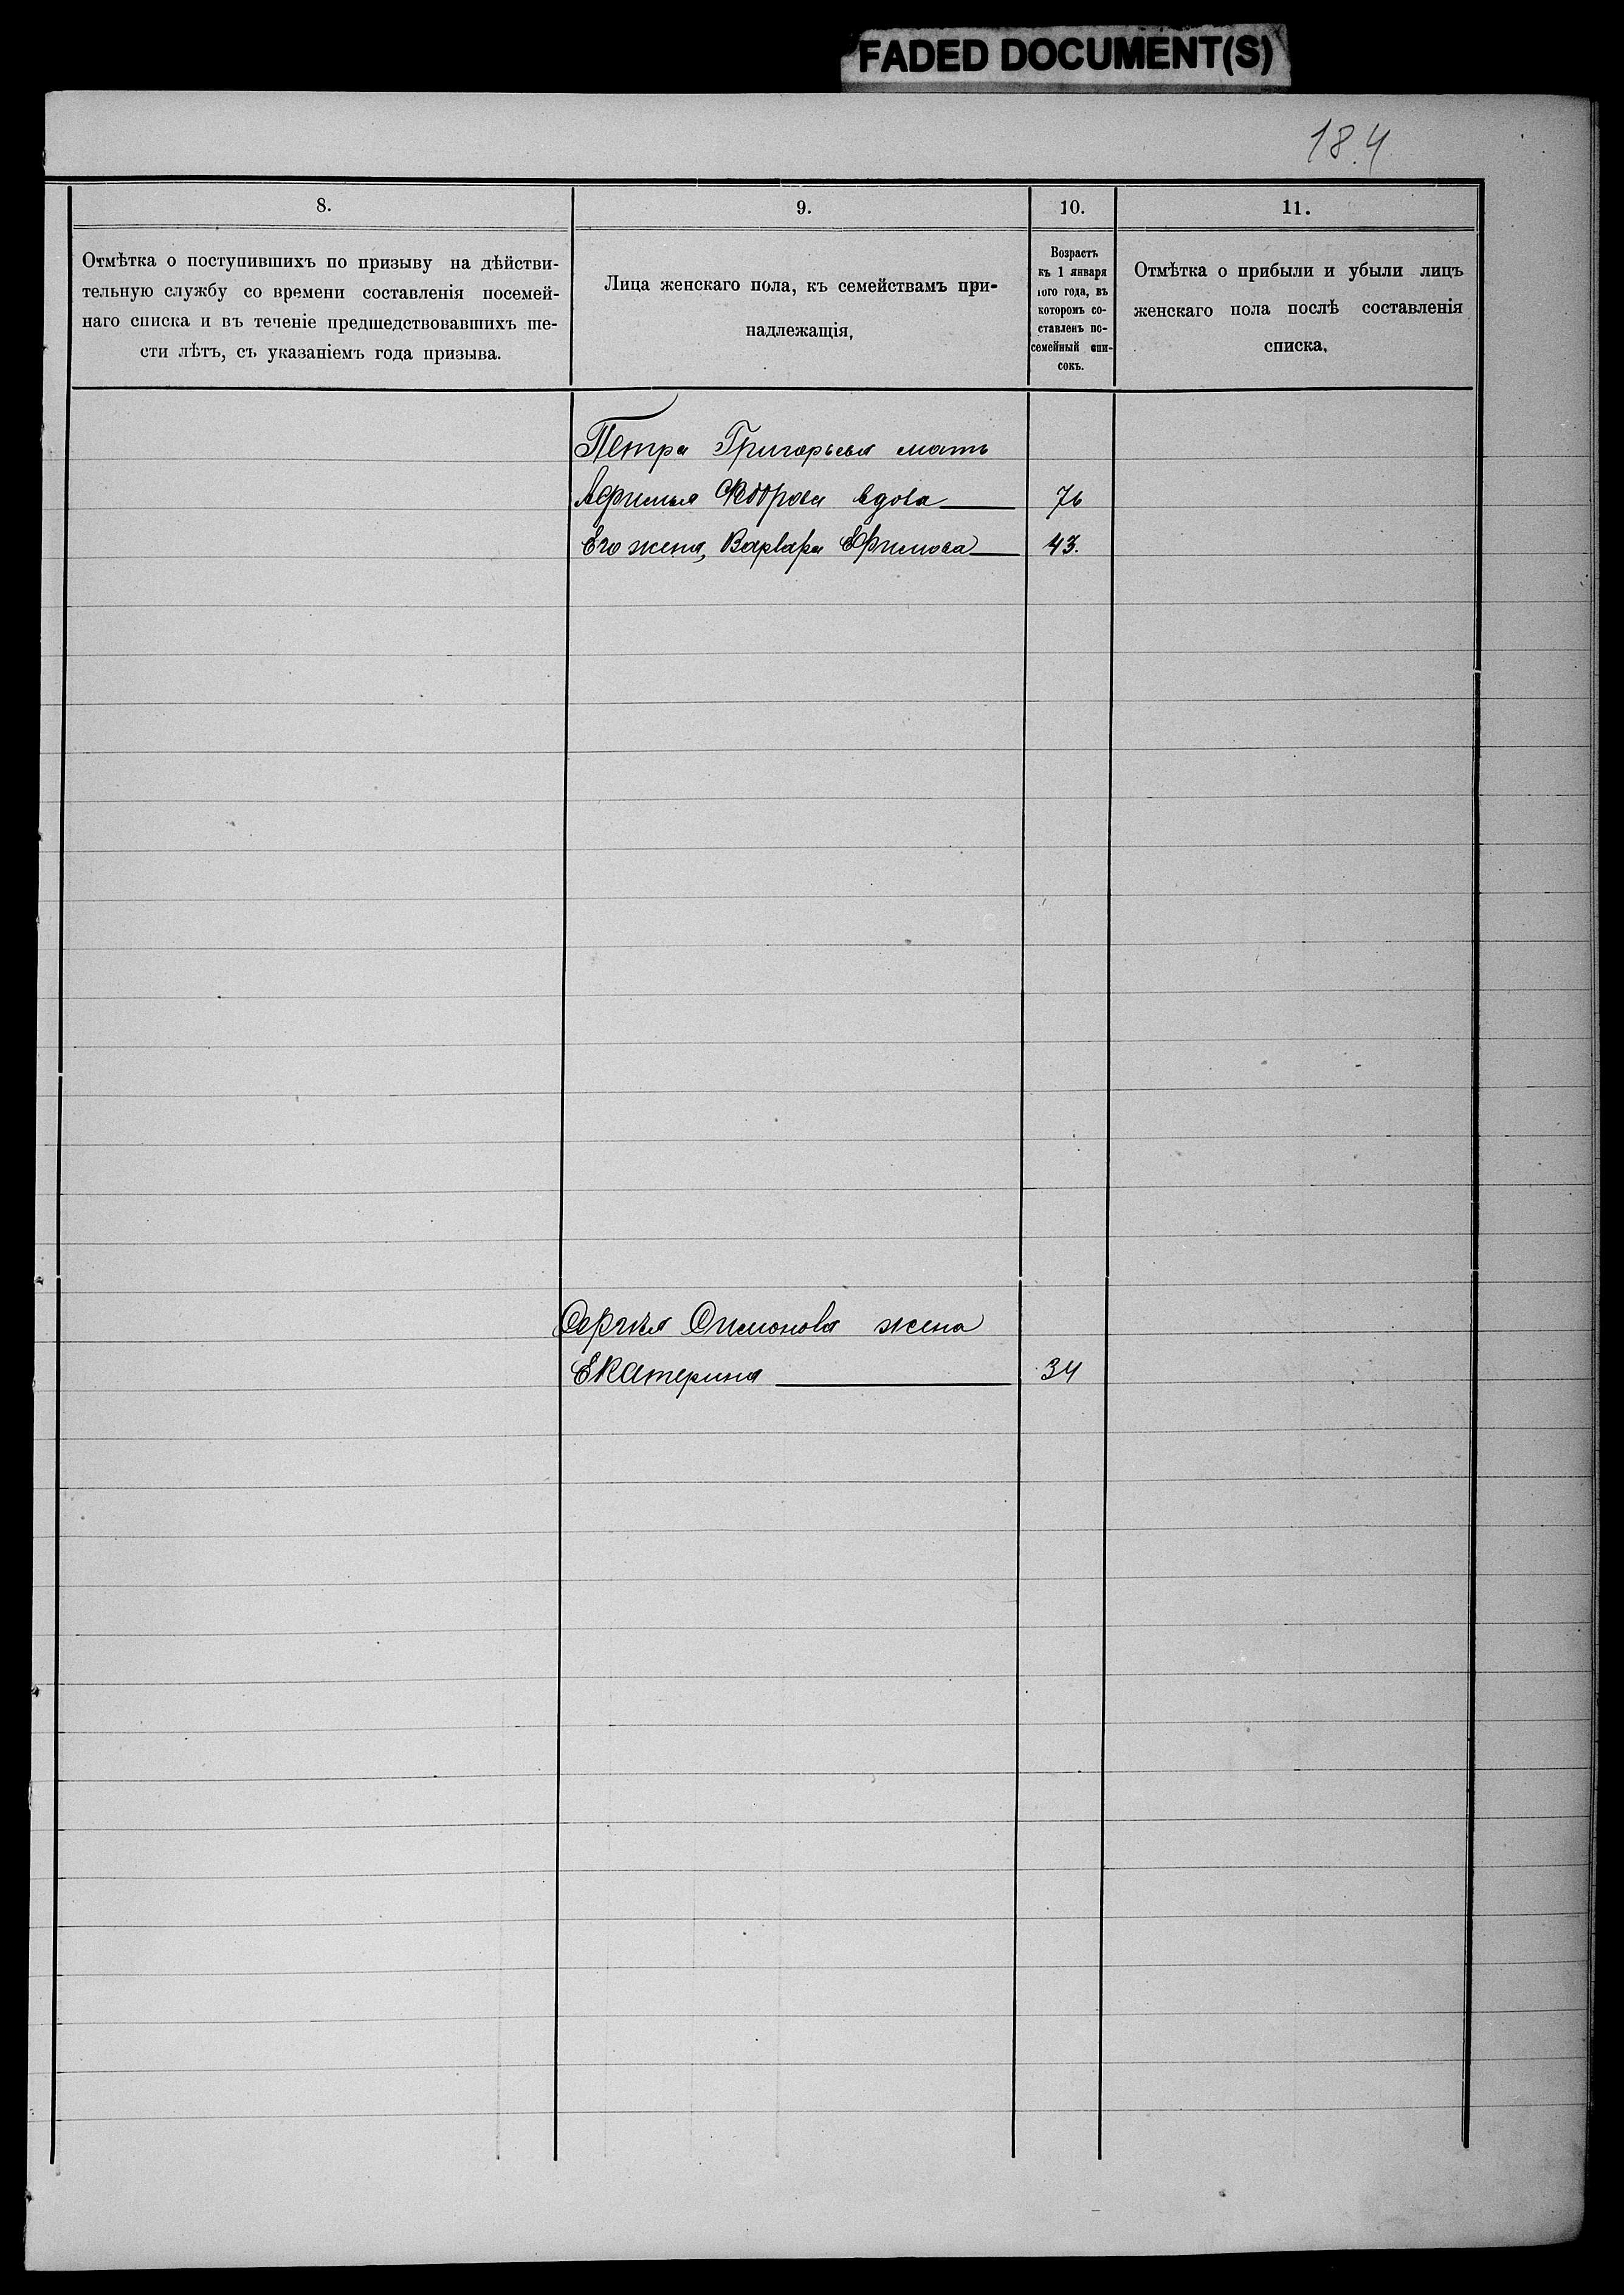 FADED DOCUMENT(S)
184
8.
9.
10.
11.
Отмѣтка о поступившихъ по призыву на дѣйстви-
тельную службу со времени составленія посемей-
наго списка и въ теченіе предшедствовавшихъ ше-
сти лѣтъ, съ указаніемъ года призыва.
Лица женскаго пола, къ семействамъ при-
надлежащія.
Возрастъ
къ 1 января
того года, въ
которомъ со-
ставленъ по-
семейный спи-
сокъ.
Отмѣтка о прибыли и убыли лицъ
женскаго пола послѣ составленія
списка.
Петра Григорьева мать
вдова 76
Его жена, Варвара Ефимова 43.
Сергѣя Симонова жена
Екатерина 34